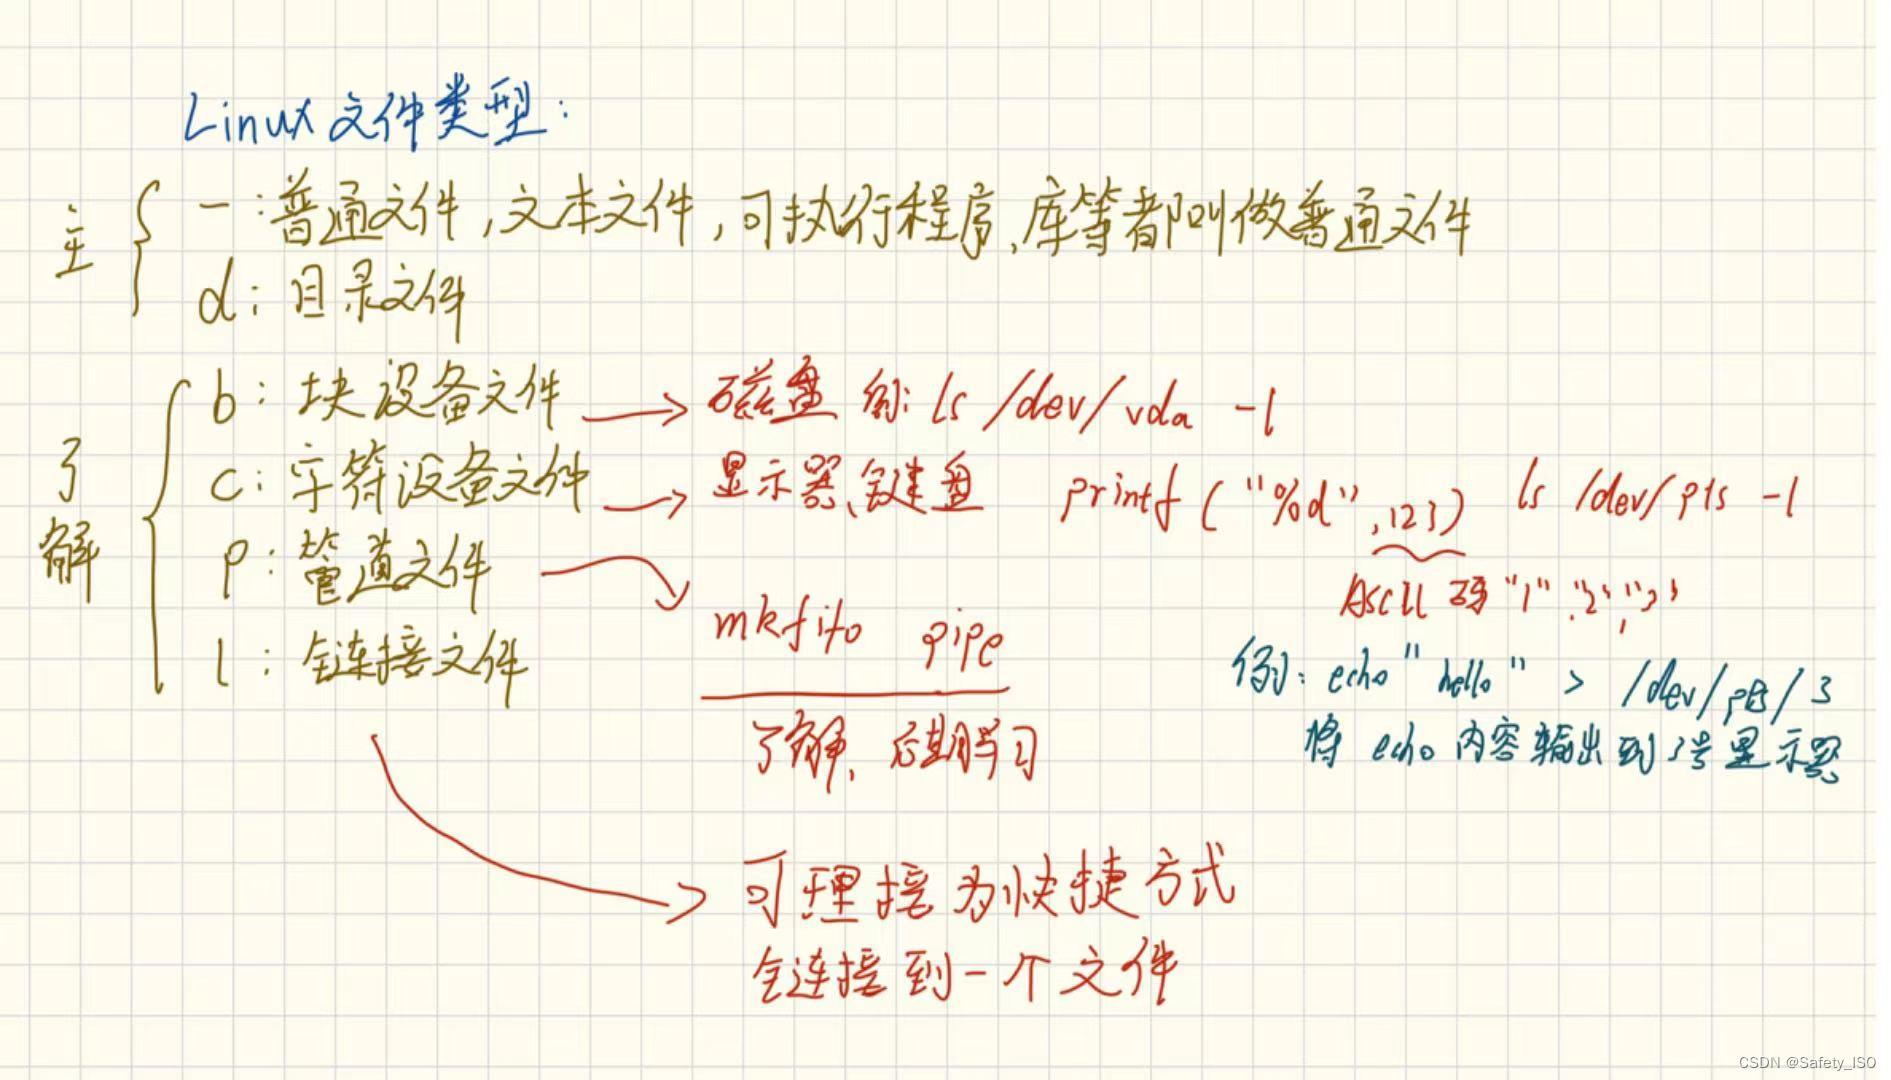 Linux 文件类型:
主
- : 普通文件,文本文件,可执行程序,库等都叫做普通文件
d: 目录文件
了解
b: 块设备文件 → 磁盘 例: ls /dev/vda -l
c: 字符设备文件 → 显示器、键盘 printf("%d",123) ls /dev/pts -l
Ascll 码 "1" "2" "3"
p: 管道文件 → mkfifo pipe
了解, 后期学习
例: echo "hello" > /dev/pts/3
将 echo 内容输出到3号显示器
l: 链接文件
可理接为快捷方式
链接到一个文件
CSDN @Safety_ISO